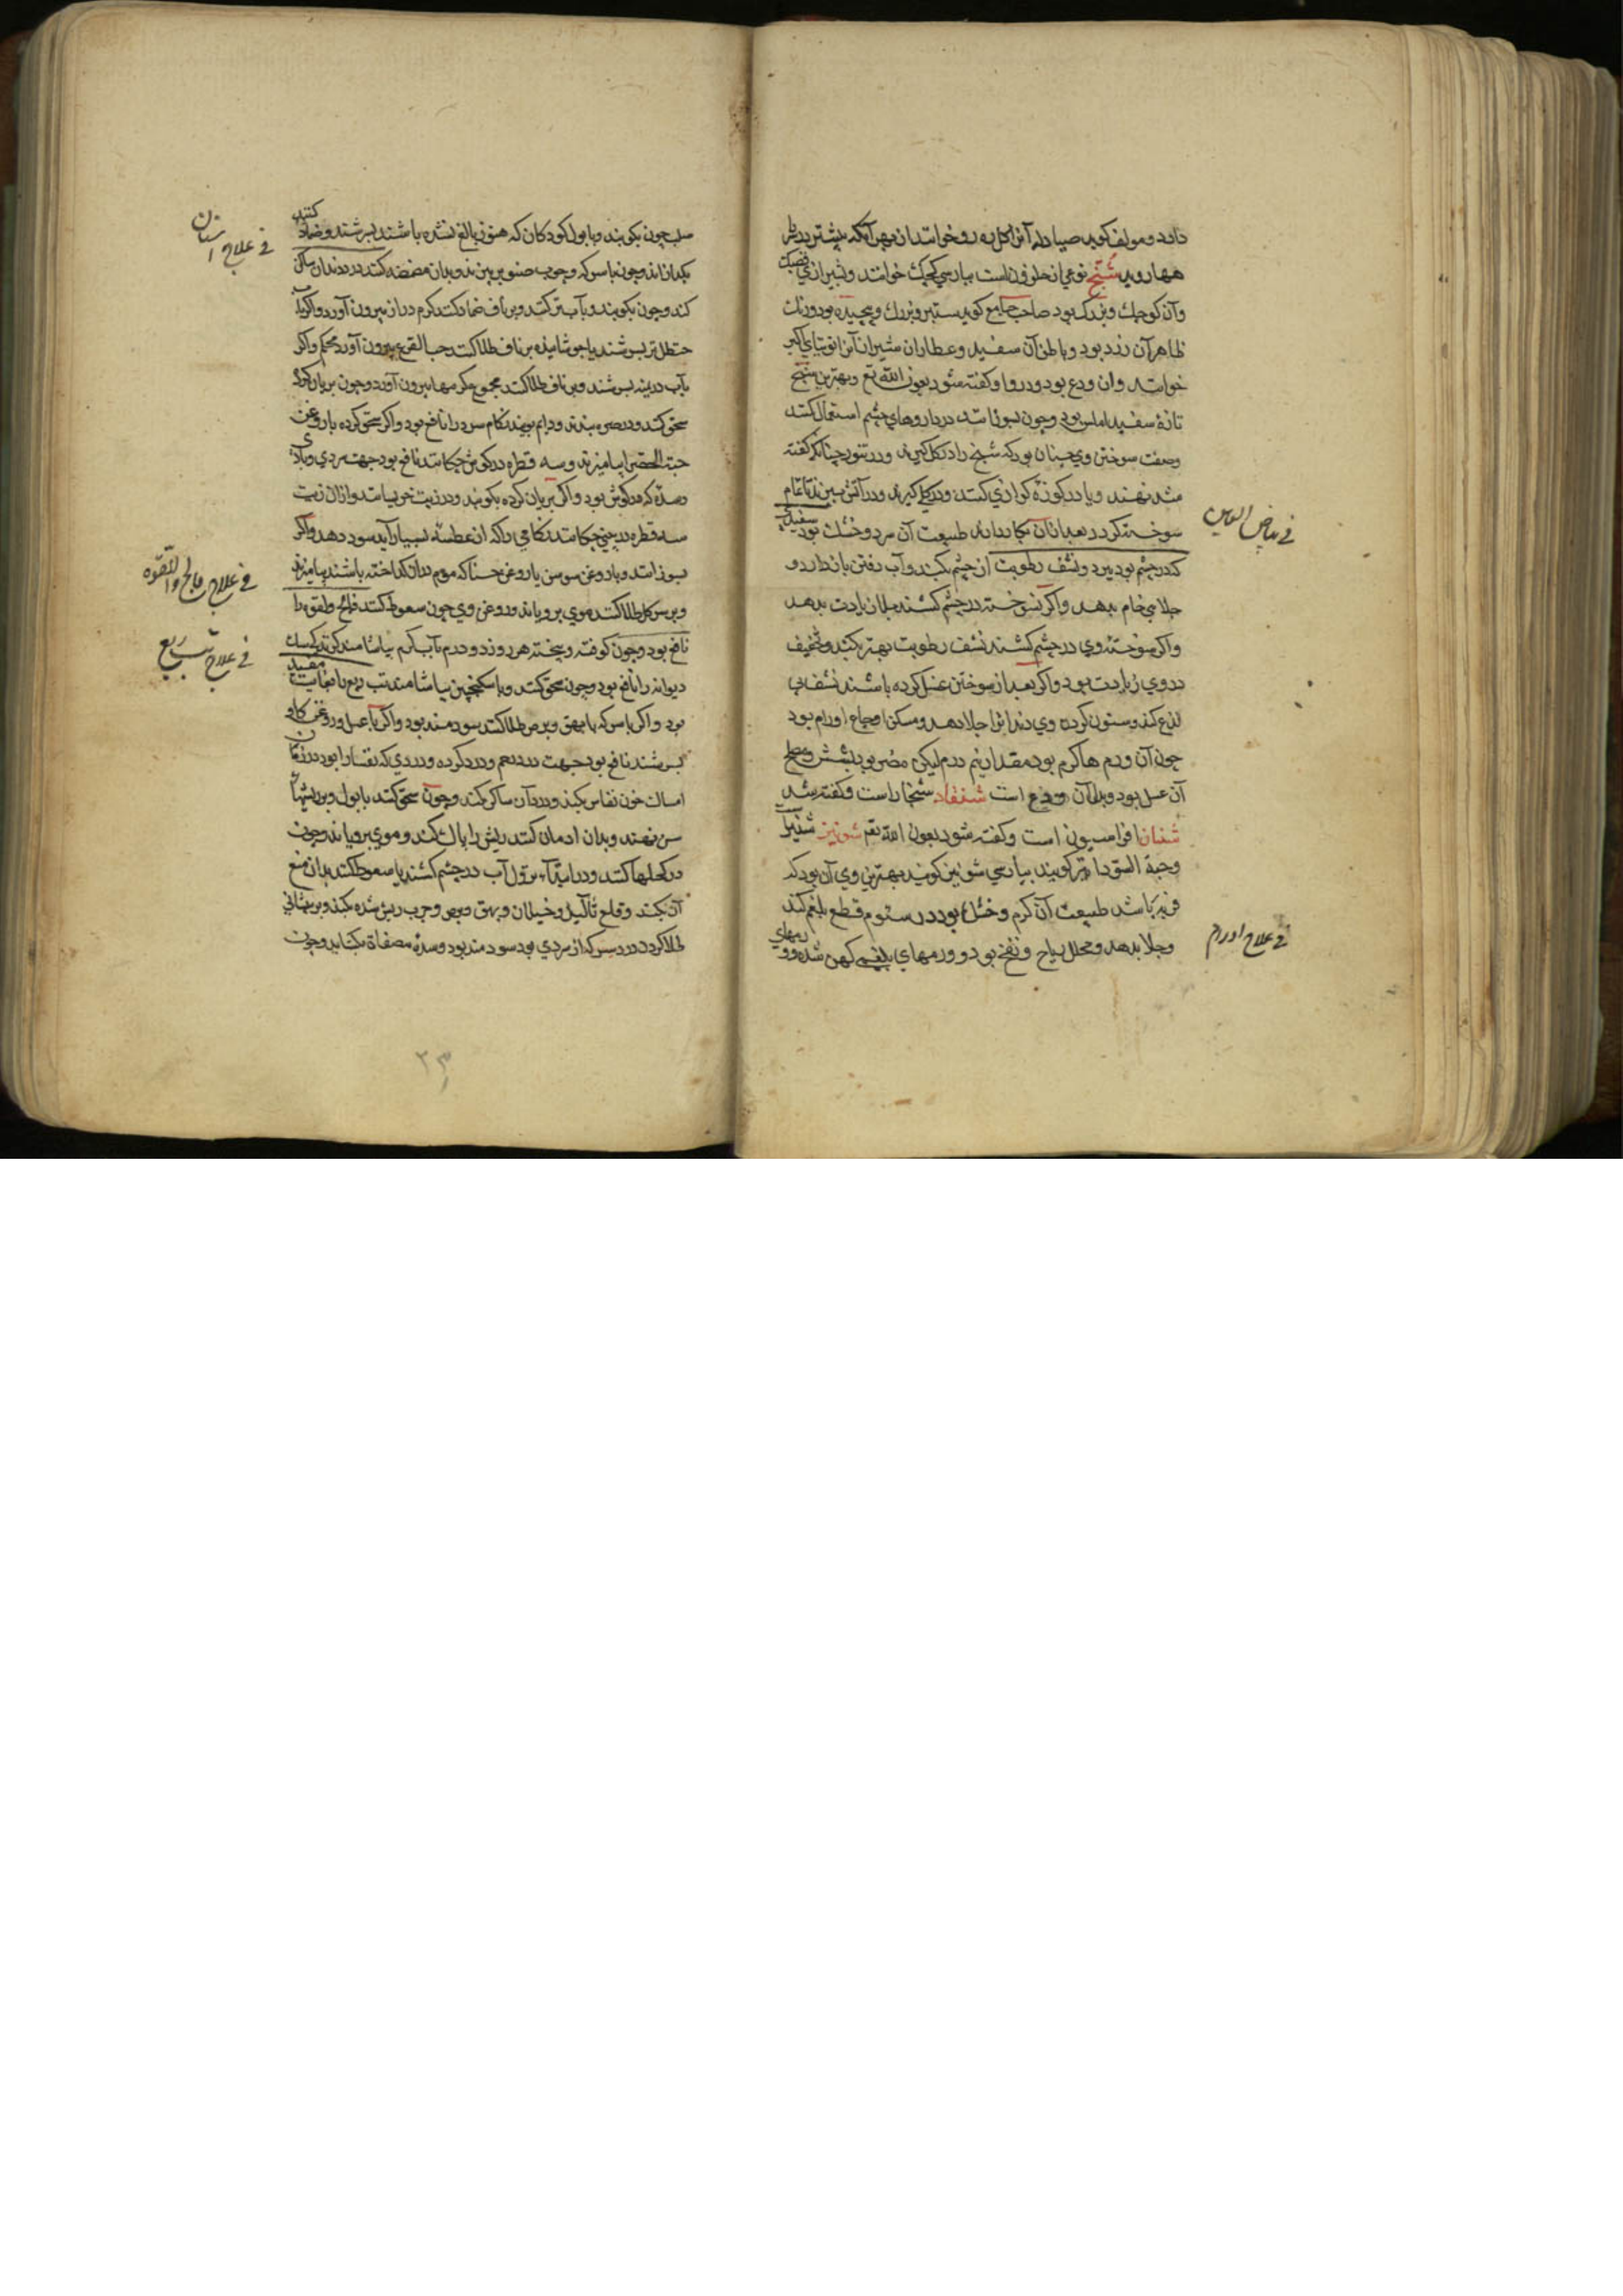 دارد و مولف کوید صیادله آنرا کل ده رو خوانند از بهر آنکه بیشتر در
بهار روید شنج نوعی از حلزون است بپارسی کچک خوانند و شیرازی
وآن کوچک وبزرک بود صاحب جامع کوید سبتبر وبزرک وپیچیده بود ورنک
ظاهر آن زرد بود وباطن آن سفید وعطاران شیراز آنرا
خوانند وان ودع بود ودر واو کفته شود بعون الله تع وبهترین شنج
تازۀ سفید املس بود وچون بسوزانند در داروهای چشم استعمال کنند
وصفت سوختن وی چنان بود که شنج را در کل کیرند ودر تنور چنانکه کفته
شد نهند ویا در کوزۀ کوازی کنند ودر کل کیرند ودر آتش نهند تا تمام
سوخته کردد بعد از آن بکار دارند طبیعت آن سرد وخشک بود سفیدی
که در چشم بود ببرد ونشف رطوبت از چشم بکند وآب رفتن باز دارد و
جلایی تمام بدهد واکر نسوخته در چشم کشند جلا زیادت بدهد
واکر سوختۀ وی در چشم کشند نشف رطوبت بهتر بکند وتجفیف
در وی زیادت بود واکر بعد از سوختن غسل کرده باشند نشف بی
لذع کند وسنون کردن وی دندانرا جلا دهد ومسکن اوجاع اورام بود
چون آن ورم ها کرم بود مقدار نیم درم لیکن مضر بود بشش ومصلح
آن عسل بود وبدل آن ودع است شنغار شنجار است وکفته شد
شنان افراسیون است وکفته شود بعون الله تع شونیز شنیز
وحبة السودا نیز کویند بپارسی شونیز کویند بهترین وی آن بود که
فربه باشد طبیعت آن کرم وخشک بود در سئوم قطع بلغم کند
وجلا بدهد ومحلل ریاح ونفخ بود وورمهای بلغمی کهن شده و
فی بیاض العین
فی علاج اورام
صلب چون بکویند وبا بول کودکان که هنوز بالغ نشده باشند بسرشند وضماد کنند
بکدازاند وچون با سرکه وچوب صنوبر بپزند وبدان مضمضه کنند درد دندان ساکن
کند وچون بکویند وبآب تر کنند وبر ناف ضماد کنند کرم دراز بیرون آورد واکر بآب
حنظل تر بسرشند یا جوشانیده بر ناف طلا کنند حب القرع بیرون آورد محکم واکر
بآب درمنه بسرشند وبر ناف طلا کنند مجموع کرمها بیرون آورد وچون بریان کرده
سحق کنند ودر صره بندند ودایم بویند زکام سرد را نافع بود واکر سحق کرده با روغن
حبة الخضرا بیامیزند وسه قطره در کوش چکانند نافع بود جهت سردی وباد
وسدۀ که در کوش بود واکر بریان کرده بکوبند ودر زیت خیسانند واز آن زیت
سه قطره در بینی چکانند زکامی را که از عطسه بسیار آید سود دهد واکر
بسوزانند وبا روغن سوسن یا روغن حنا که موم در آن کداخته باشند بیامیزند
وبر سر کل طلا کنند موی برویاند وروغن وی چون سعوط کنند فالج ولقوه را
نافع بود وچون کوفته وبیخته هر روز دو درم بآب کرم بیاشامند کزیدکی سک
دیوانه را نافع بود وچون سحق کنند وبا سکنجبین بیاشامند تب ربع را بغایت مفید
بود واکر با سرکه با بهق وبرص طلا کنند سودمند بود واکر با عسل وروغن کاو
بسرشند نافع بود جهت درد رحم ودرد کرده ودردی که نفسا را بود در زمان
امساک خون نفاس بکند ودرد آن ساکن کند وچون سحق کنند با بول وبر ریشهای
سر نهند وبدان ادمان کنند ریش را پاک کند وموی برویاند وچون
در کحلها کنند ودر ابتدآء نزول آب در چشم کشند یا سعوط کنند بدان منع
آن بکند وقلع ثآلیل وخیلان وبهق وبرص وجرب ریش شده بکند وبر پیشانی
طلا کردن درد سر که از سردی بود سودمند بود وسدۀ مصفاة بکشاید وچون
فی علاج اسنان
فی علاج فالج واللقوه
فی علاج تب ربع